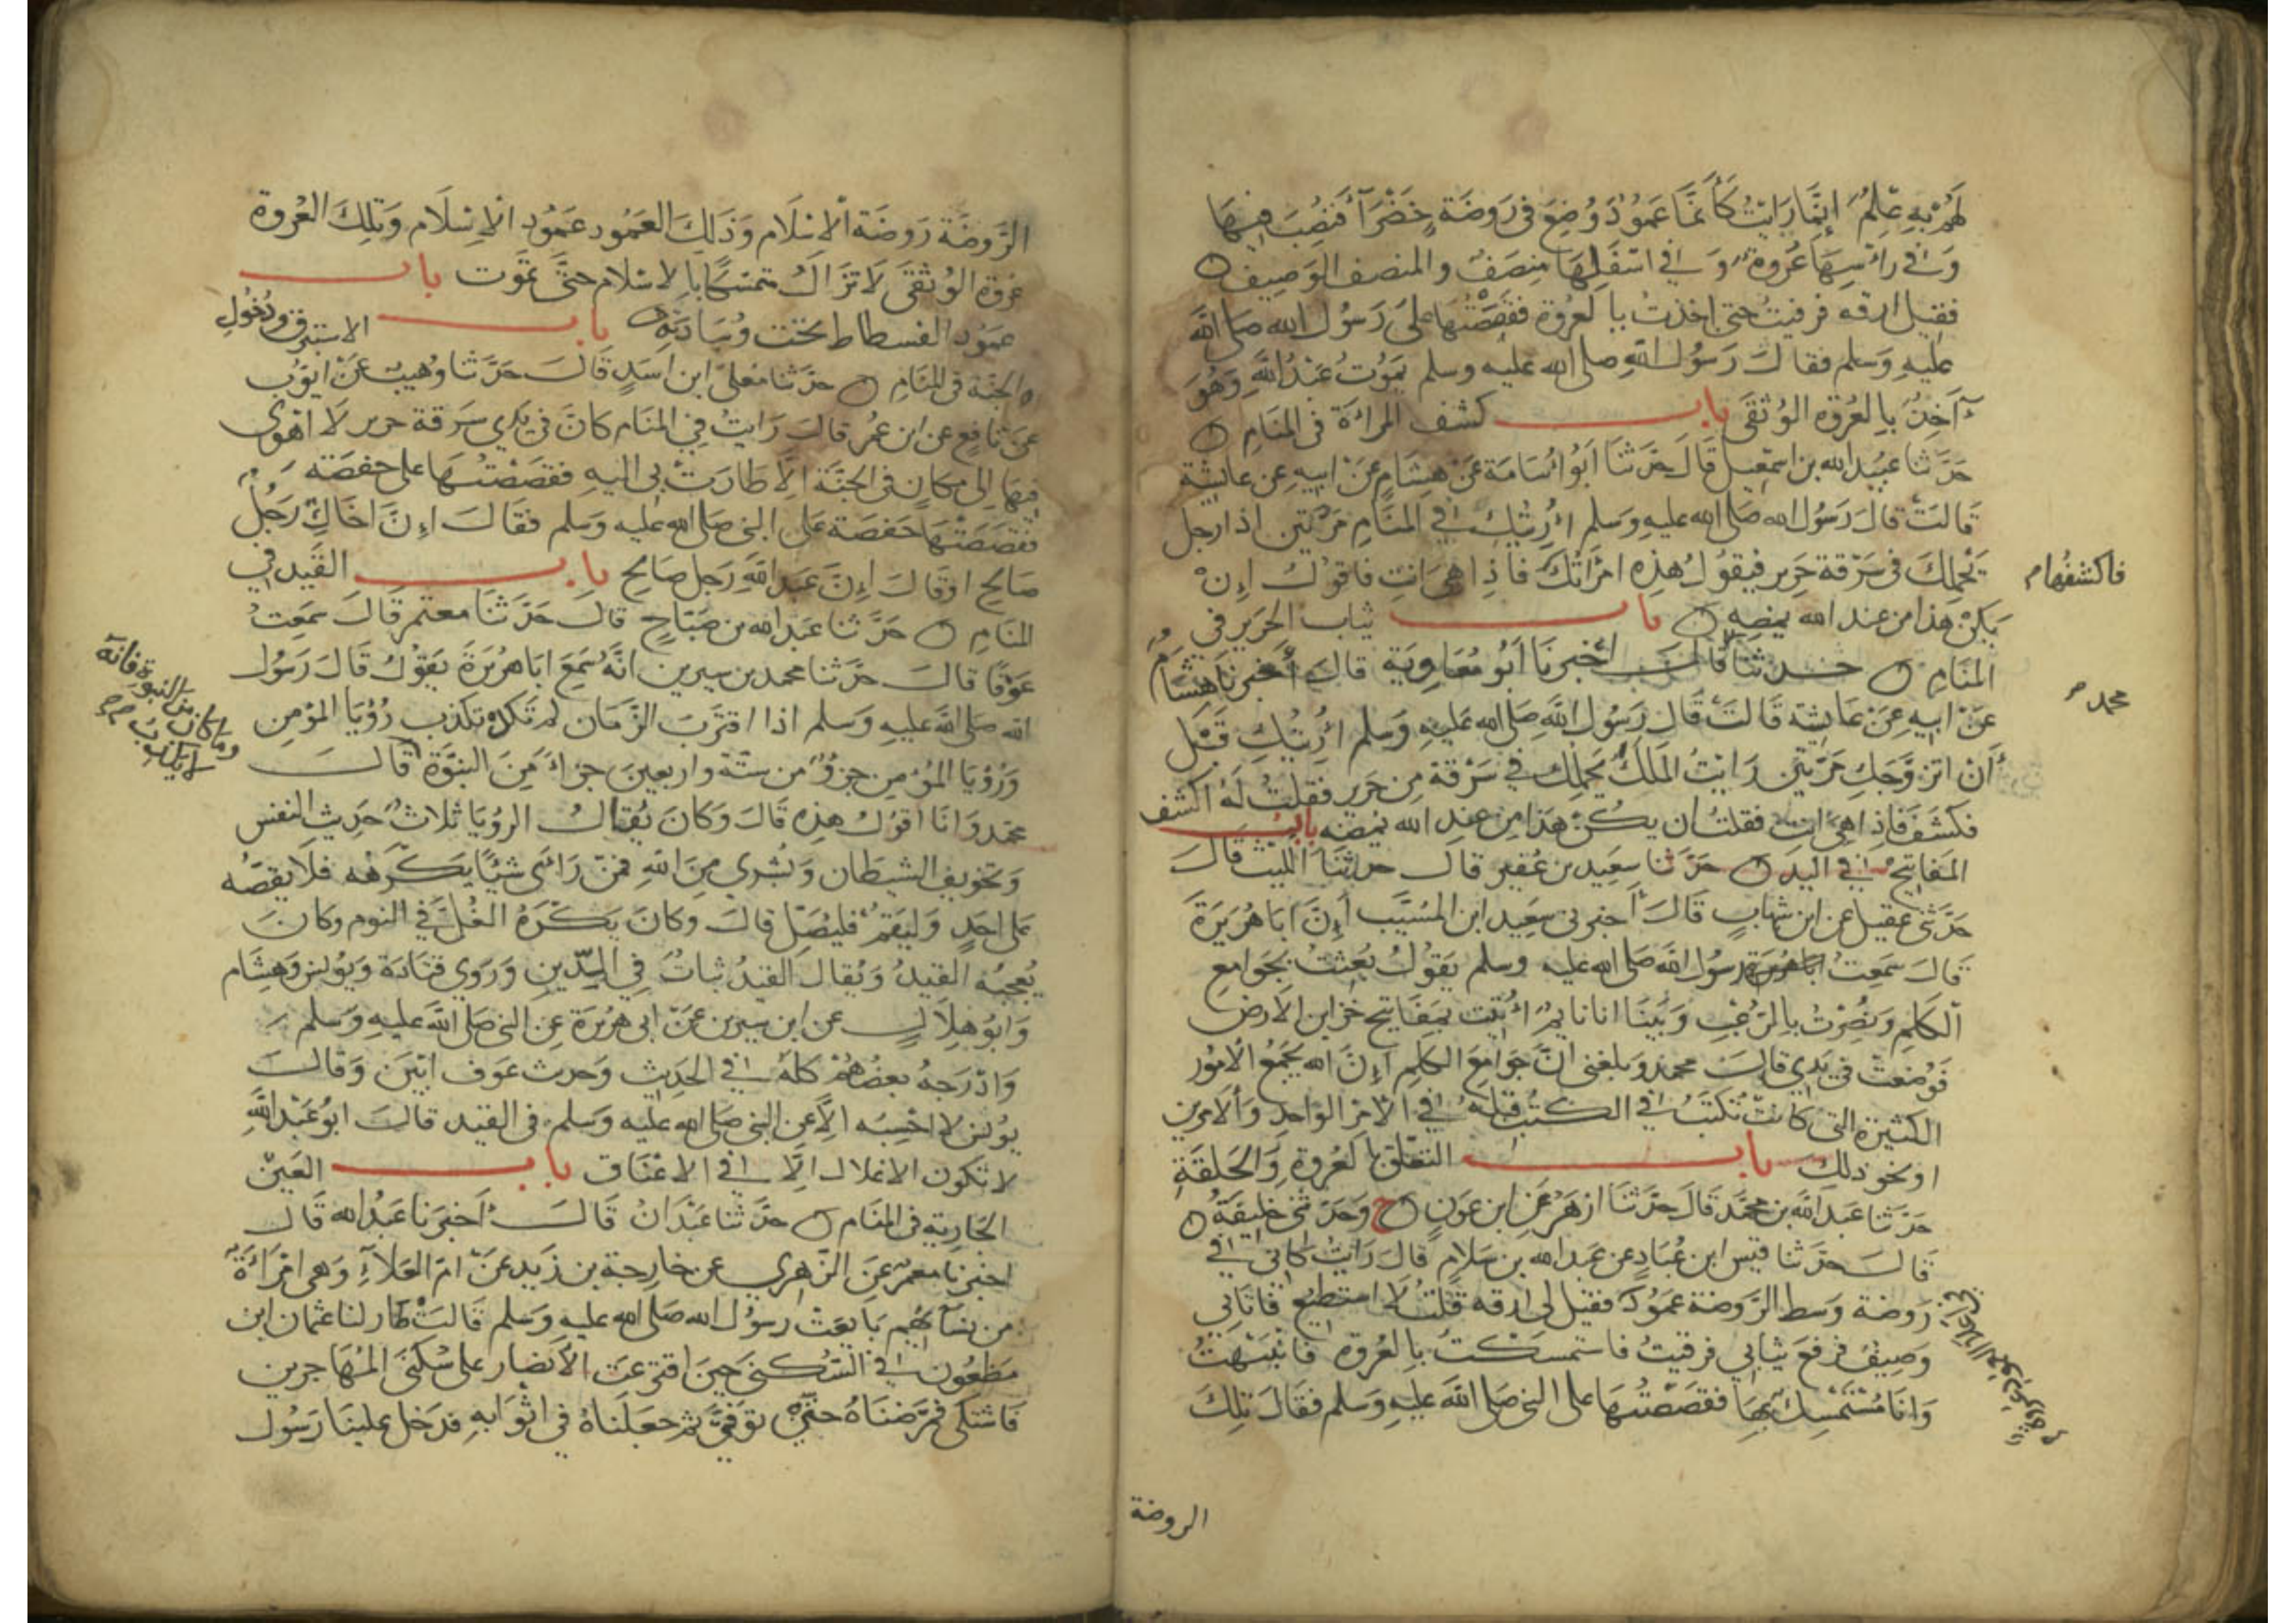 لهم به علم إنما رأيت كأنما عمود وضع في روضة خضرآء فنصب فيها
وفي رأسها عروة وفي اسفلها منصف والمنصف الوصيف
فقيل ارقه فرقيت حتى اخذت بالعروة فقصصتها على رسول الله صلى الله
عليه وسلم فقال رسول الله صلى الله عليه وسلم يموت عبد الله وهو
آخذ بالعروة الوثقى باب كشف المرأة في المنام
حدثنا عبيد الله بن اسمعيل قال حدثنا أبو أسامة عن هشام عن ابيه عن عايشة
قالت قال رسول الله صلى الله عليه وسلم أريتك في المنام مرتين اذا رجل
يحملك في سرقة حرير فيقول هذه امرأتك فاذا هي انت فاقول إن
فاكشفها م
يكن هذا من عند الله يمضه باب ثياب الحرير في
المنام حدثنا قال أخبرنا أبو معاوية قال أخبرنا هشام
محمد
عن ابيه عن عايشة قالت قال رسول الله صلى الله عليه وسلم أريتك قبل
أن اتزوجك مرتين رايت الملك يحملك في سرقة من حرير فقلت له اكشف
فكشف فإذا هي انت فقلت ان يكن هذا من عند الله يمضه باب
المفاتيح في اليد حدثنا سعيد بن عفير قال حدثنا الليث قال
حدثني عقيل عن ابن شهاب قال أخبرني سعيد ابن المسيب إن ابا هريرة
قال سمعت رسول الله صلى الله عليه وسلم يقول بعثت بجوامع
الكلم ونصرت بالرعب وبينا انا نايم أتيت بمفاتيح خزاين الارض
فوضعت في يدي قال محمد وبلغني ان جوامع الكلم إن الله يجمع الامور
الكثيرة التي كانت تكتب في الكتب قبله في الامر الواحد والامرين
او نحو ذلك باب التعلق بالعروة والحلقة
حدثنا عبد الله بن محمد قال حدثنا ازهر عن ابن عون ح وحدثني خليفة
قال حدثنا قيس ابن عباد عن عبد الله بن سلام قال رايت كاني في
روضة وسط الروضة عمود فقيل لي ارقه قلت لا استطيع فاتاني
وصيف فرفع ثيابي فرقيت فاستمسكت بالعروة فانتبهت
وانا مستمسك بها فقصصتها على النبي صلى الله عليه وسلم فقال تلك
الروضة
الروضة روضة الاسلام وذلك العمود عمود الاسلام وتلك العروة
عروة الوثقى لا تزال متمسكا بالاسلام حتى تموت باب
عمود الفسطاط تحت وسادته باب الاستبرق ودخول
الجنة في المنام حدثنا معلى ابن اسد قال حدثنا وهيب عن ايوب
عن نافع عن ابن عمر قال رايت في المنام كان في يدي سرقة حرير لا اهوى
فيها إلى مكان في الجنة الا طارت بي اليه فقصصتها على حفصة
فقصصتها حفصة على النبي صلى الله عليه وسلم فقال إن اخاك رجل
صالح او قال إن عبد الله رجل صالح باب القيد في
المنام حدثنا عبد الله بن صباح قال حدثنا معتمر قال سمعت
عوفا قال حدثنا محمد بن سيرين انه سمع ابا هريرة يقول قال رسول
الله صلى الله عليه وسلم اذا اقترب الزمان لم تكد تكذب رؤيا المؤمن
ورؤيا المؤمن جزؤ من ستة واربعين جزأ من النبوة قال
وما كان من النبوة فانه
لا يكذب
محمد وانا اقول هذه قال وكان يقال الرؤيا ثلاث حديث النفس
وتخويف الشيطان وبشرى من الله فمن رأى شيئا يكرهه فلا يقصه
على احد وليقم فليصل قال وكان يكره الغل في النوم وكان
يعجبه القيد ويقال القيد ثبات في الدين وروى قتادة ويونس وهشام
وابو هلال عن ابن سيرين عن ابي هريرة عن النبي صلى الله عليه وسلم
وادرجه بعضهم كله في الحديث وحديث عوف ابين وقال
يونس لا احسبه الا عن النبي صلى الله عليه وسلم في القيد قال ابو عبد الله
لا تكون الاغلال الا في الاعناق باب العين
الجارية في المنام حدثنا عبدان قال أخبرنا عبد الله قال
اخبرنا معمر عن الزهري عن خارجة بن زيد عن ام العلآء وهي امرأة
من نسآئهم بايعت رسول الله صلى الله عليه وسلم قالت طار لنا عثمان ابن
مظعون في السكنى حين اقترعت الانصار على سكنى المهاجرين
فاشتكى فمرضناه حتى توفي ثم جعلناه في اثوابه فدخل علينا رسول